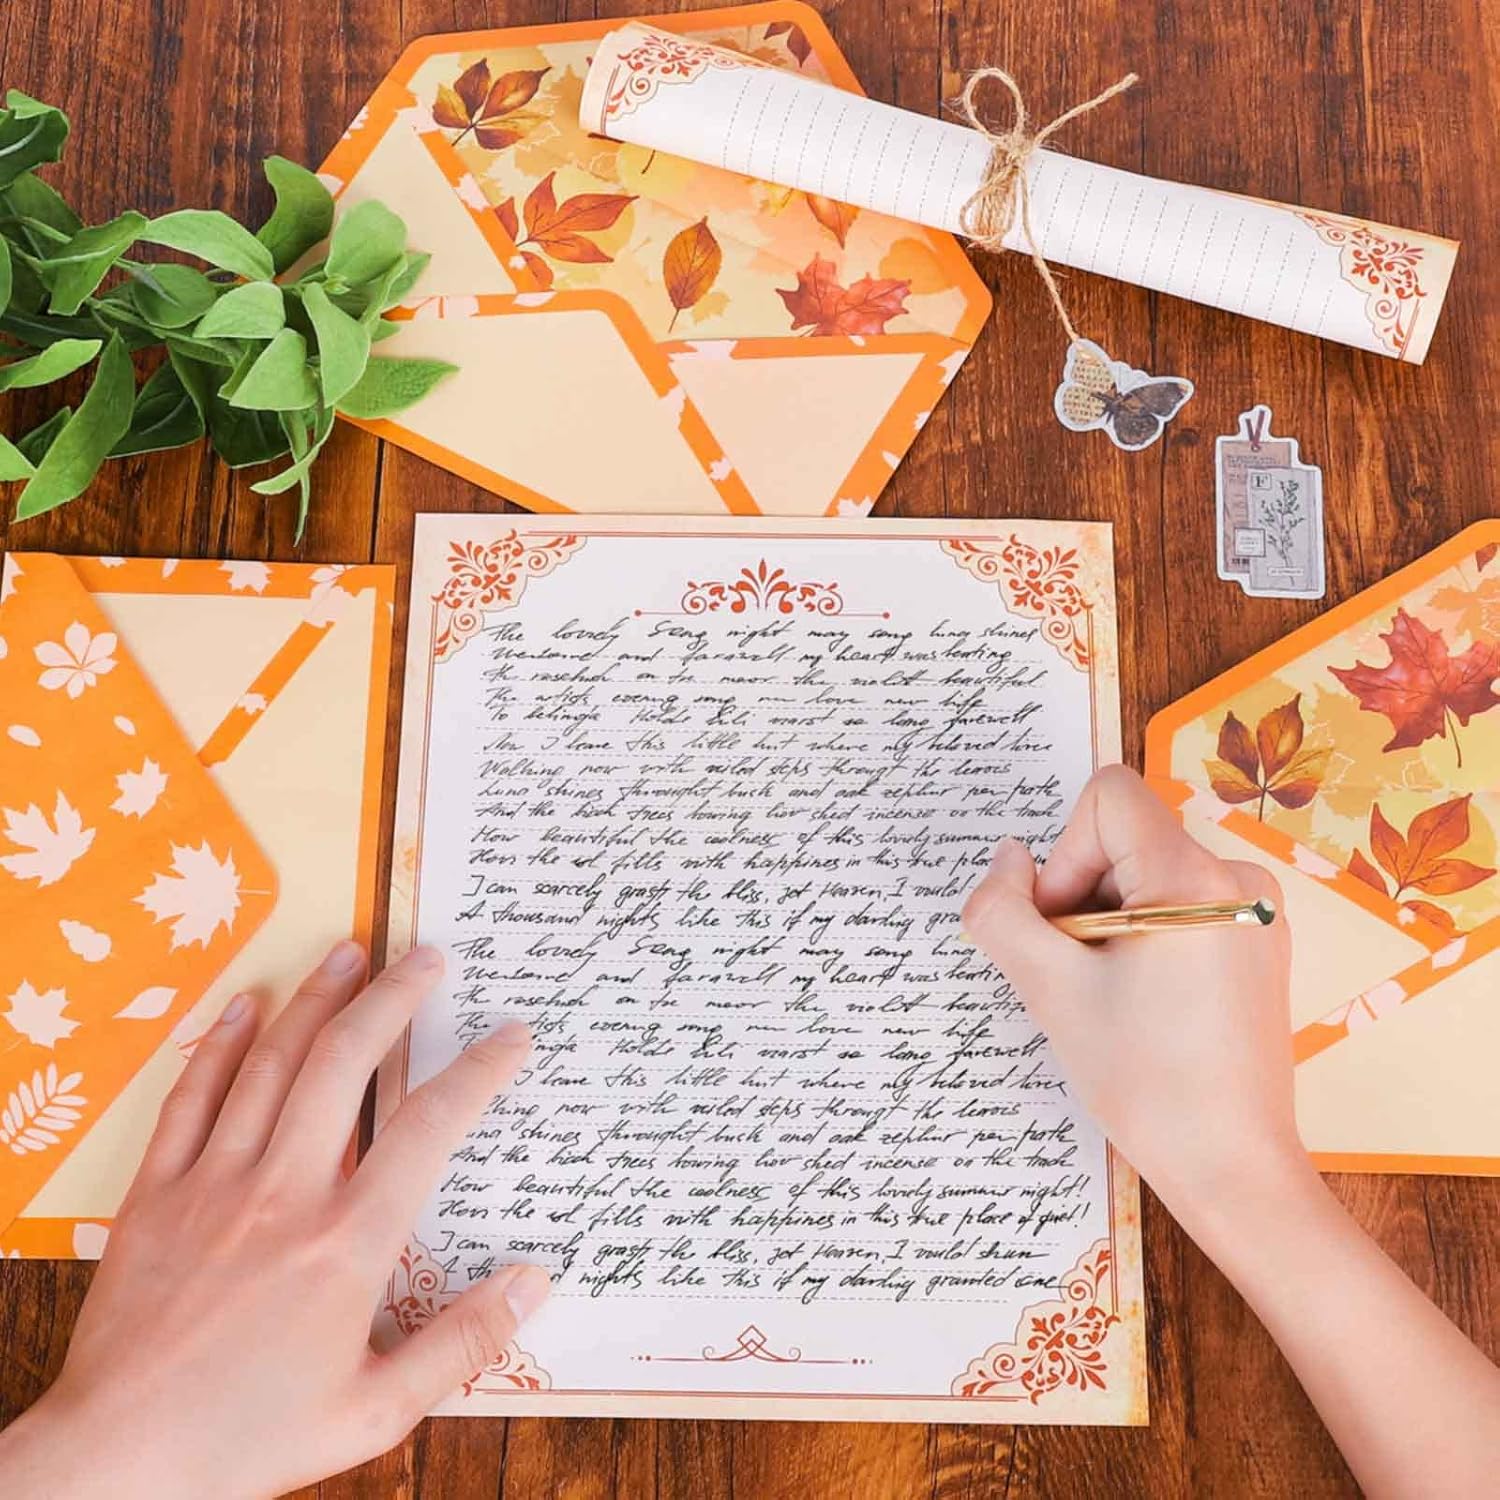 The lovely Song night may song luna shines
Welcome and farawell my heart was beating
The rosebush on the moor the violett beautiful
The artists evening song new love new life
To belinda Holde Lili warst so long farewell
Now I leave this little hut where my beloved lives
Walking now with veiled steps through the leaves
Luna shines throught bush and oak zephur per path
And the birch trees bowing low shed incense on the track
How beautiful the coolness of this lovely summer night
How the fills with happines in this true place
I can scarcely grasp the bliss, yet Heaven, I would
A thousand nights like this if my darling gra
The lovely Song night may song luna
Welcome and farawell my heart was beatin
The rosebush on the moor the violett beautif
The tists evening song new love new life
Holde Lili warst so long farewell
I leave this little hut where my beloved lives
lking now with veiled steps through the leaves
una shines throught bush and oak zephur per path
And the birch trees bowing low shed incense on the track
How beautiful the coolness of this lovely summer night!
How the fills with happines in this true place of quiet!
I can scarcely grasp the bliss, yet Heaven, I would shun
A th d nights like this if my darling granted one
F